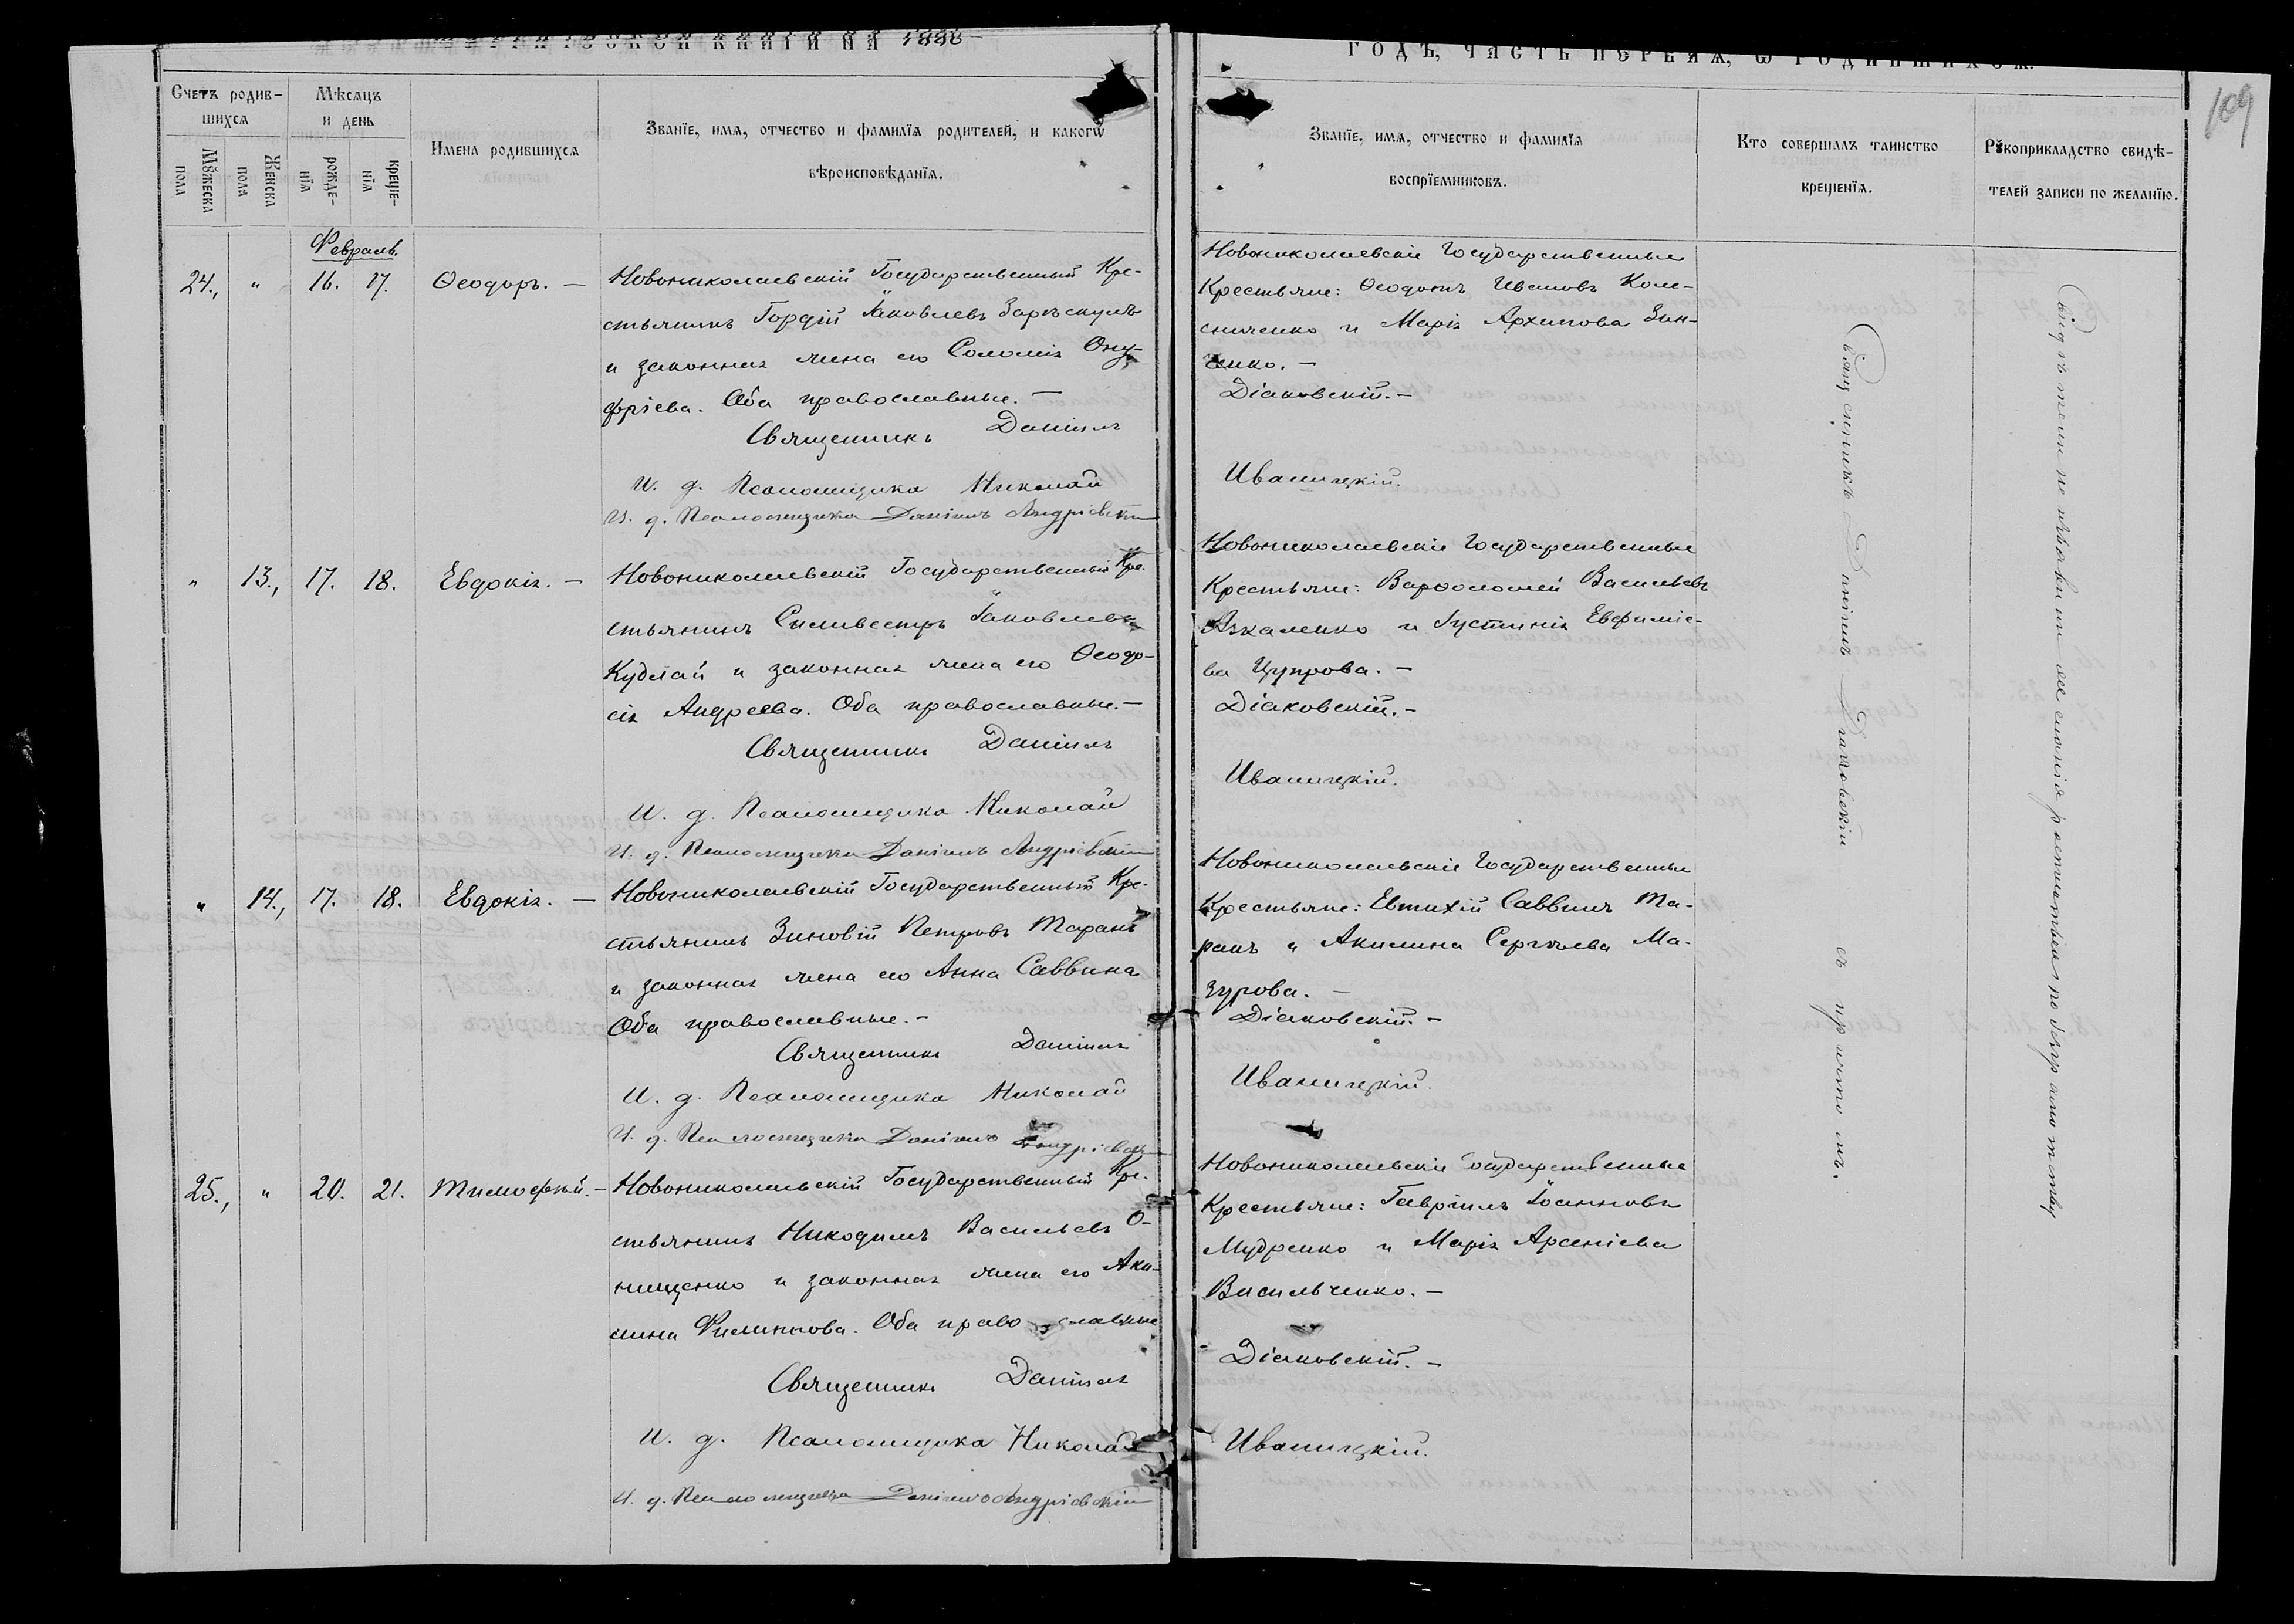 1888
ГОДЪ, ЧАСТЬ ПЕРВАЯ, Ѡ РОДИВШИХСЯ.
109
Счетъ родив-
шихся
Мѣсяцъ
и день
Мꙋжеска
пола
Женска
пола
рожде-
нїя
креще-
нїя
Имена родившихся
Званїе, имя, отчество и фамилїя родителей, и какогѡ
вѣроисповѣданїя.
Званїе, имя, отчество и фамилїя
воспрїемниковъ.
Кто совершалъ таинство
крещенїя.
Рꙋкоприкладство свидѣ-
телей записи по желанїю.
Февраль.
24., " 16. 17. Ѳеодоръ. —
Новониколаевскій Государственный Кре-
стьянинъ Гордій Іаковлевъ
и законная жена его Соломія Ону-
фріева. Оба православные. —
Священникъ Даніилъ
И. д. Псаломщика Николай
И. д. Псаломщика Даніилъ Андріевскій
Новониколаевскіе Государственные
Крестьяне: Ивановъ Коле-
сниченко и Марія Архипова Зин-
ченко. —
Діаковскій. —
Иваницкій.
" 13., 17. 18. Евдокія. —
Новониколаевскій Государственный Кре-
стьянинъ Силивестръ Іаковлевъ
Кудлай и законная жена его Ѳеодо-
сія Андреева. Оба православные. —
Священникъ Даніилъ
И. д. Псаломщика Николай
И. д. Псаломщика Даніилъ Андріевскій
Новониколаевскіе Государственные
Крестьяне: Варѳоломей Васильевъ
и Іустинія Евфиміе-
ва Цупрова. —
Діаковскій. —
Иваницкій.
" 14., 17. 18. Евдокія. —
Новониколаевскій Государственный Кре-
стьянинъ Зиновій Петровъ Таранъ
и законная жена его Анна Саввина
Оба православные. —
Священникъ Даніилъ
И. д. Псаломщика Николай
И. д. Псаломщика Даніилъ Андріевскій
Новониколаевскіе Государственные
Крестьяне: Евтихій Саввинъ Та-
ранъ и Акилина Сергѣева Ма-
зурова. —
Діаковскій. —
Иваницкій.
25., " 20. 21. Тимофей. —
Новониколаевскій Государственный Кре-
стьянинъ Никодимъ Васильевъ О-
нищенко и законная жена его Аки-
лина Филиппова. Оба православные
Священникъ Даніилъ
И. д. Псаломщика Николай
И. д. Псаломщика Даніилъ Андріевскій
Новониколаевскіе Государственные
Крестьяне: Гавріилъ Іоанновъ
Мудренко и Марія Арсеніева
Васильченко. —
Діаковскій. —
Иваницкій.
Священникъ Даніилъ Діаковскій съ причтомъ.
Свидѣтели не изъявили желанія росписаться по безграмотству